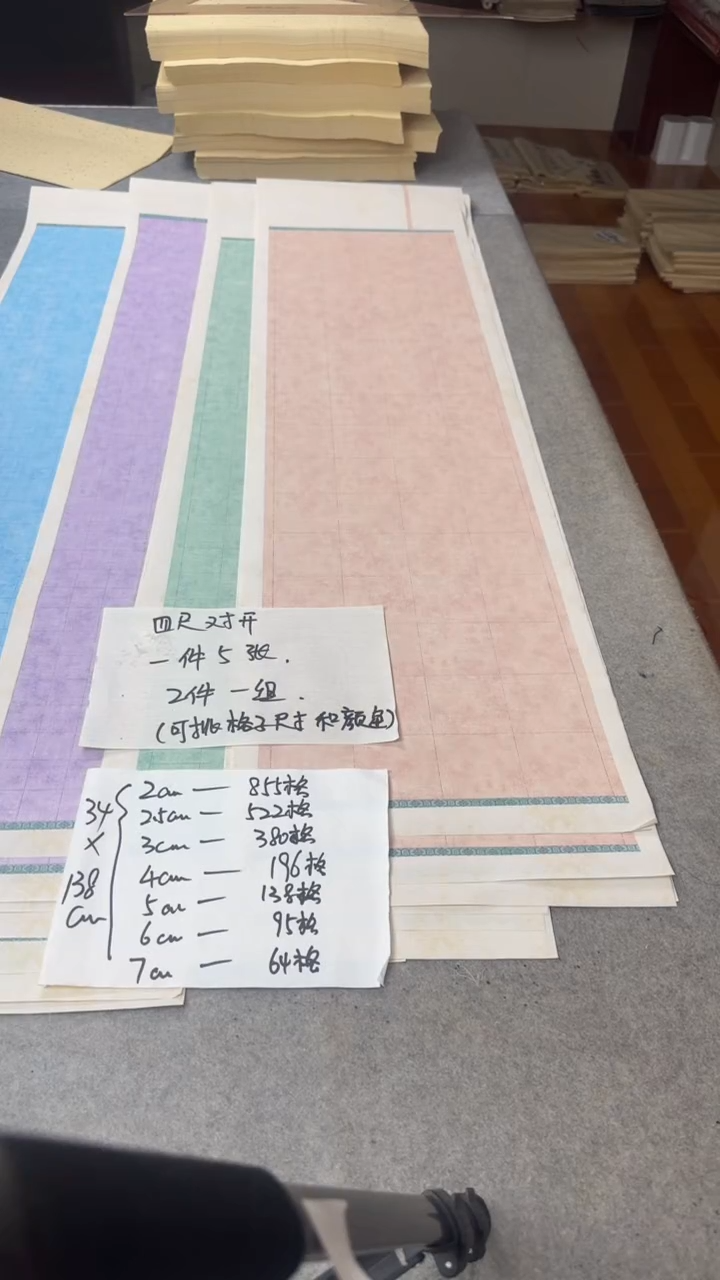 四尺对开
一件5张.
2件一组.
(可挑格子尺寸和颜色)
34
×
138
cm
2cm — 855格
2.5cm — 522格
3cm — 380格
4cm — 196格
5cm — 138格
6cm — 95格
7cm — 64格